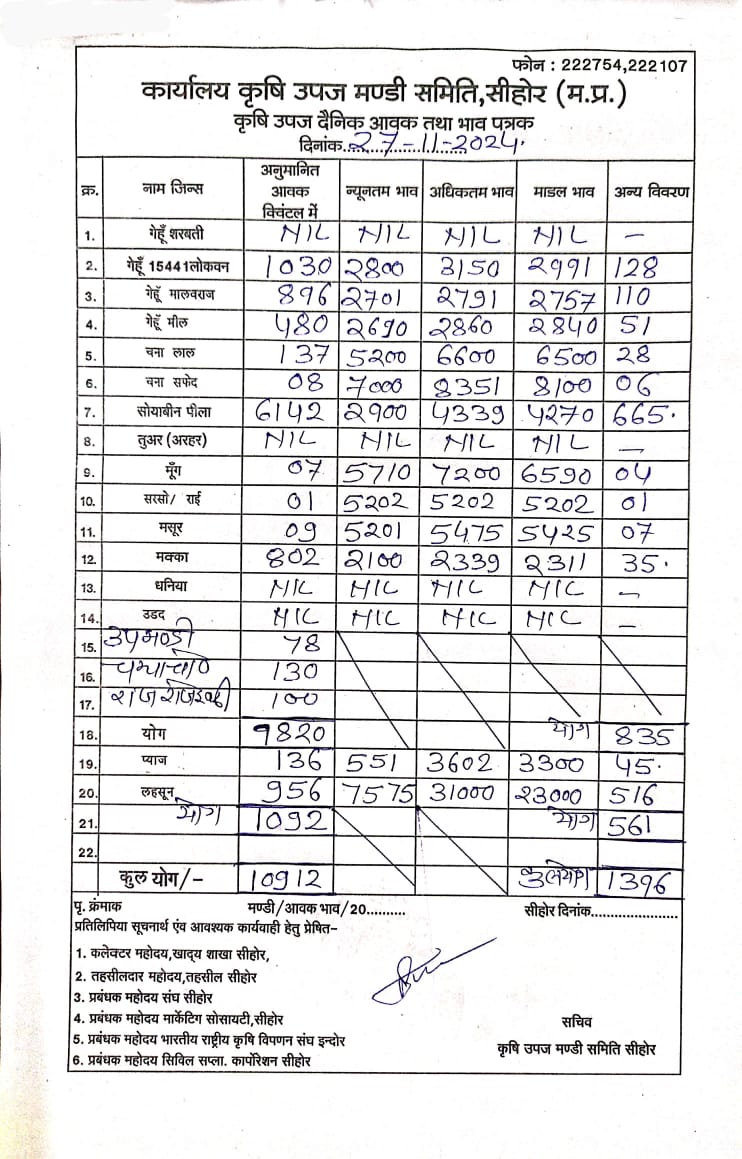 फोन : 222754,222107
कार्यालय कृषि उपज मण्डी समिति,सीहोर (म.प्र.)
कृषि उपज दैनिक आवक तथा भाव पत्रक
दिनांक..27-11-2024.
क्र. नाम जिन्स अनुमानित आवक क्विंटल में न्यूनतम भाव अधिकतम भाव माडल भाव अन्य विवरण
1. गेहूँ शरबती NIL NIL NIL NIL –
2. गेहूँ 15441लोकवन 1030 2800 3150 2991 128
3. गेहूँ मालवराज 896 2701 2791 2757 110
4. गेहूँ मील 480 2690 2860 2840 51
5. चना लाल 137 5200 6600 6500 28
6. चना सफेद 08 7000 8351 8100 06
7. सोयाबीन पीला 6142 2900 4339 4270 665.
8. तुअर (अरहर) NIL NIL NIL NIL –
9. मूँग 07 5710 7200 6590 04
10. सरसो/ राई 01 5202 5202 5202 01
11. मसूर 09 5201 5475 5425 07
12. मक्का 802 2100 2339 2311 35.
13. धनिया NIL NIL NIL NIL –
14. उडद NIL NIL NIL NIL –
15. उपमण्डी 78
16. 130
17. 100
18. योग 9820 योग 835
19. प्याज 136 551 3602 3300 45.
20. लहसून 956 7575 31000 23000 516
21. योग 1092 योग 561
22.
कुल योग/- 10912 कुलयोग 1396
पृ. क्रंमाक मण्डी/आवक भाव/20.......... सीहोर दिनांक......................
प्रतिलिपिया सूचनार्थ एंव आवश्यक कार्यवाही हेतु प्रेषित–
1. कलेक्टर महोदय,खाद्य शाखा सीहोर,
2. तहसीलदार महोदय,तहसील सीहोर
3. प्रबंधक महोदय संघ सीहोर
4. प्रबंधक महोदय मार्केटिग सोसायटी,सीहोर
5. प्रबंधक महोदय भारतीय राष्ट्रीय कृषि विपणन संघ इन्दोर
6. प्रबंधक महोदय सिविल सप्ला. कार्पोरेशन सीहोर
सचिव
कृषि उपज मण्डी समिति सीहोर